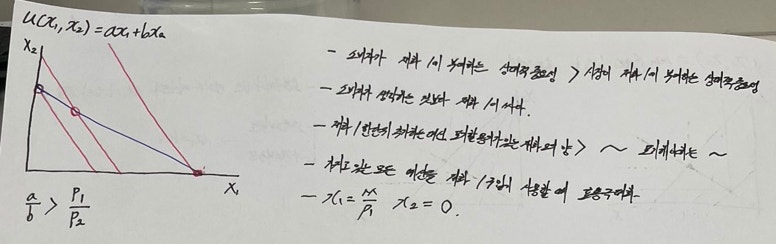 u(x₁, x₂) = ax₁+bx₂
x₂
x₁
a/b > P₁/P₂
- 소비자가 재화 1에 부여하는 상대적 중요성 > 시장이 재화 1에 부여하는 상대적 중요성
- 소비자가 생각하는 것보다 재화 1이 싸다.
- 재화 1 한단위 추가하는데 포기할 용의가 있는 재화 2의 양 > ~ 포기해야하는 ~
- 가지고 있는 모든 예산을 재화 1 구입에 사용할 때 효용극대화
- x₁ = m/p₁ x₂ = 0.